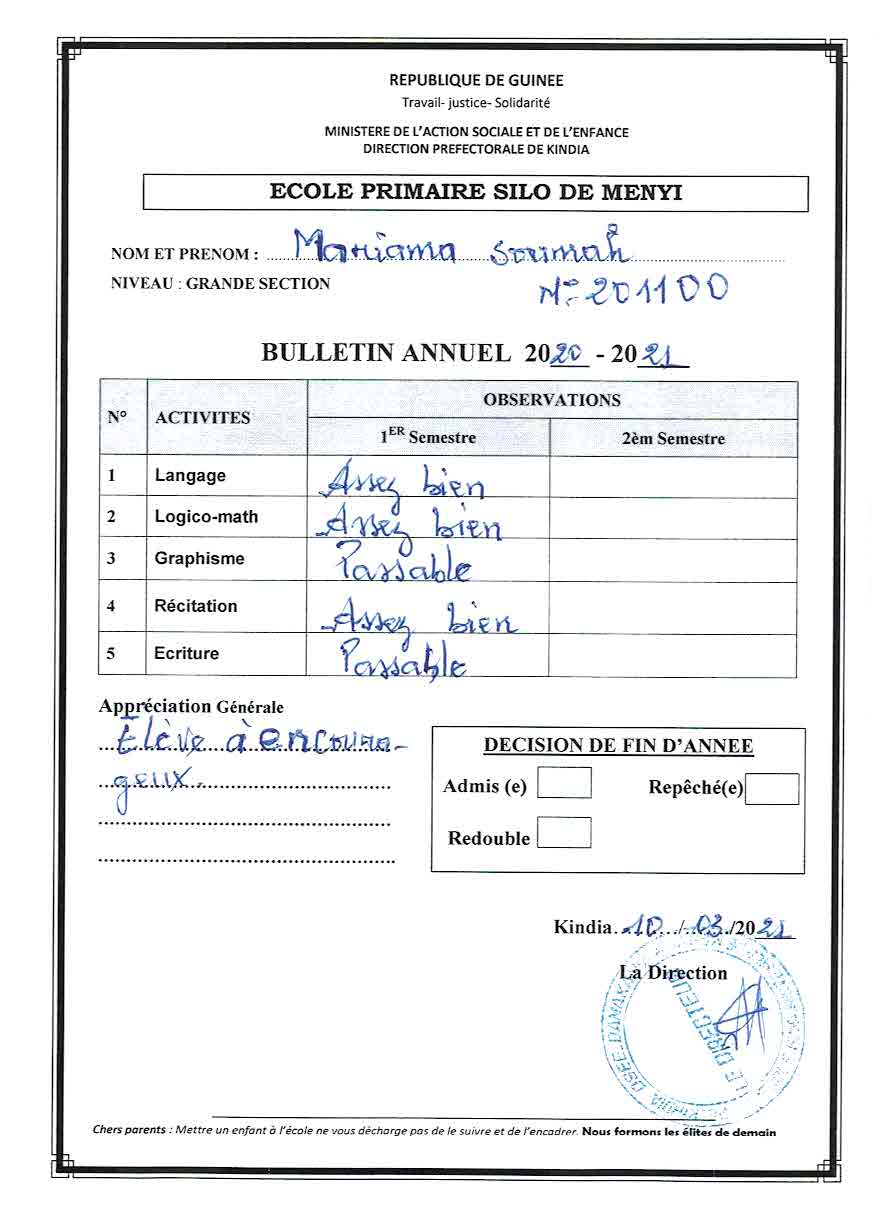 REPUBLIQUE DE GUINEE
Travail- justice- Solidarité
MINISTERE DE L'ACTION SOCIALE ET DE L'ENFANCE
DIRECTION PREFECTORALE DE KINDIA
ECOLE PRIMAIRE SILO DE MENYI
NOM ET PRENOM : Mariama Soumah
NIVEAU : GRANDE SECTION N° 201100
BULLETIN ANNUEL 2020 - 2021
N° ACTIVITES OBSERVATIONS
1ER Semestre 2èm Semestre
1 Langage Assez bien
2 Logico-math Assez bien
3 Graphisme Passable
4 Récitation Assez bien
5 Ecriture Passable
Appréciation Générale
Elève à encoura-
geux.
DECISION DE FIN D'ANNEE
Admis (e) Repêché(e)
Redouble
Kindia 10/03/2021
La Direction
LE DIRECTEUR
Chers parents : Mettre un enfant à l'école ne vous décharge pas de le suivre et de l'encadrer. Nous formons les élites de demain